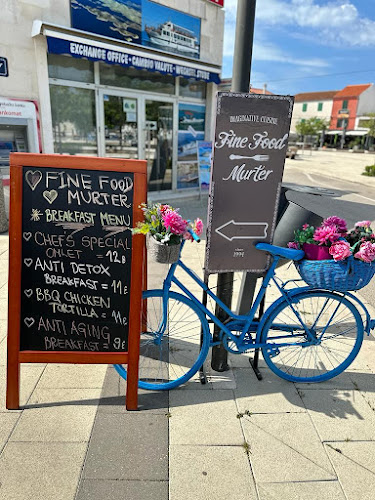 EXCHANGE OFFICE - CAMBIO VALUTE - WECHSELSTUBE
IMAGINATIVE CUISINE
Fine Food
Murter
since
1994
FINE FOOD
MURTER
BREAKFAST MENU
CHEFS SPECIAL
OMLET 12€
ANTI DETOX
BREAKFAST 11€
BBQ CHICKEN
TORTILLA 11€
ANTI AGING
BREAKFAST 9€